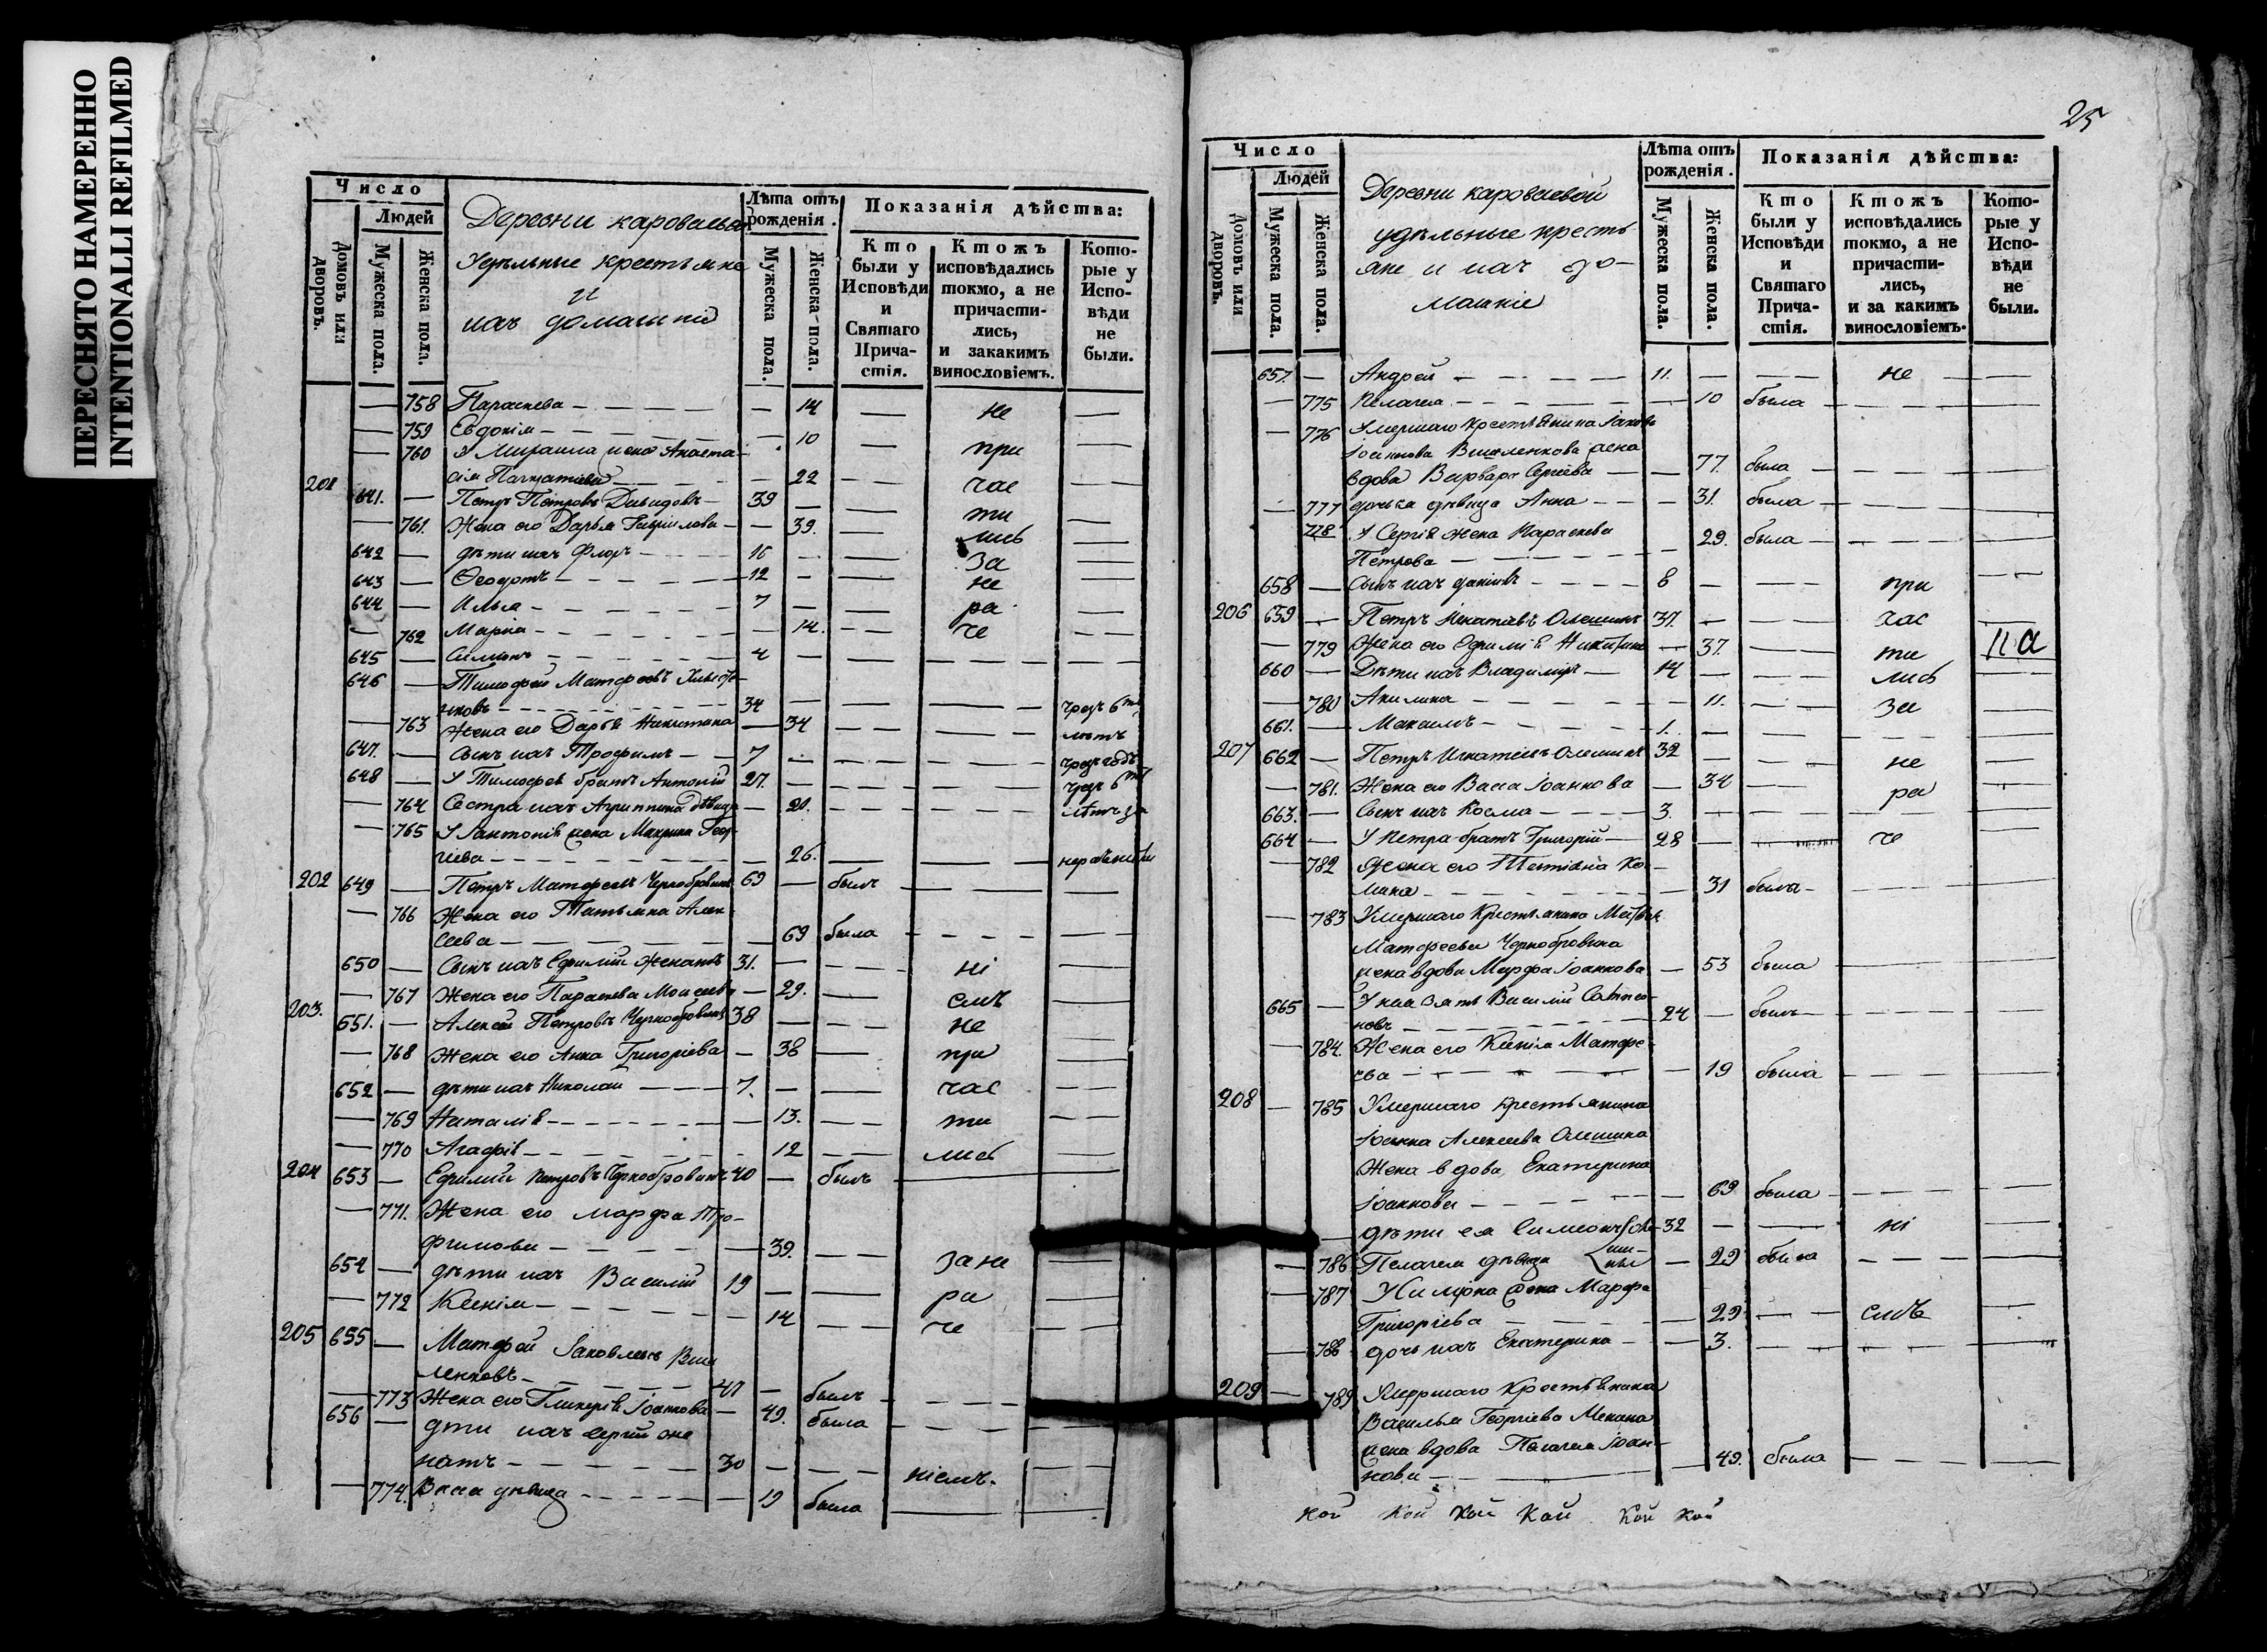 ПЕРЕСНЯТО НАМЕРЕННО
INTENTIONALLI REFILMED
Число
Людей
Домовъ или дворовъ.
Мужеска пола.
Женска пола.
Деревни
Удѣльные крестьяне
и
ихъ домашніе
Лѣта отъ рожденія.
Мужеска пола.
Женска пола.
Показанія дѣйства:
Кто были у Исповѣди и Святаго Причастія.
Ктожъ исповѣдались токмо, а не причастились, и закакимъ винословіемъ.
Которые у Исповѣди не были.
758 Параскева — 14 — не —
759 Евдокім — 10
760 У Михаила жена Анаста- при
сія — 22 — час
201 641. — Петръ Петровъ Давидовъ — 39 — ти
761. Жена его Дарья Гавриилова — 39. — лись
642 — дѣти ихъ Флоръ — 16 — За
643 — Ѳеодотъ — 12 — не
644 — Илья — 7 — ра
762 Марія — 14. — че
645 — Симонъ — 4
646 — Тимофей Матфеевъ
34 — чрезъ 6ть
763 Жена его Дарья Никитина — 34 — лѣтъ
647. — Сынъ ихъ Трофимъ — 7 — чрезъ годъ
648 — У Тимофея братъ Антоній 27. — чрезъ 6ть
764 Сестра ихъ Агриппина дѣвица — 20. — лѣтъ за
765 У Антонія жена Геор-
гіева — 26. — нераченіемъ
202 649 — Петръ Матфеевъ Чернобровинъ 69 — былъ
766 Жена его Татьяна Алек-
сеева — 69 была
650 — Сынъ ихъ Ефимій женатъ 31. — ні
767 Жена его Параскева Моисеева — 29. — смъ
203. 651. — Алексей Петровъ Чернобровинъ 38 — не
768 Жена его Анна Григоріева — 38 — при
652 — дѣти ихъ Николай — 7. — час
769 Наталія — 13. — ти
770 Агафія — 12 — лись
204 653 — Ефимій Петровъ Чернобровинъ 40 — былъ
771. Жена его Марфа Тро-
фимова — 39. — за не
654 — дѣти ихъ Василій 19 — ра
772 Ксенія — 14 — че
205 655 — Матфей Іаковлевъ Виш
ленковъ — 47 — былъ
773 Жена его Гликерія Іоаннова — 49. была
656 — дѣти ихъ Сергій же
натъ — 30 — ніемъ.
774. Васса дѣвица — 19 была
25
Число
Людей
Домовъ или дворовъ.
Мужеска пола.
Женска пола.
Деревни Короваевой
удѣльные кресть
яне и ихъ до-
машніе
Лѣта отъ рожденія.
Мужеска пола.
Женска пола.
Показанія дѣйства:
Кто были у Исповѣди и Святаго Причастія.
Ктожъ исповѣдались токмо, а не причастились, и за какимъ винословіемъ.
Которые у Исповѣди не были.
657. — Андрей — 11. — не —
775 Пелагея — 10 была
776 Умершаго крестьянина Іакова
Іоаннова Вишленкова жена
вдова Варвара Сергіева — 77. была
777 дочька дѣвица Анна — 31. была
778 У Сергія жена Параскева 29. была
Петрова
658 — Сынъ ихъ — 8 — при
206 659 — Петръ Игнатіевъ Олешинъ 37. — час
779 Жена его Ефимія Никитина — 37. — ти
660 — Дѣти ихъ Владиміръ — 14 — лись
780 Акилина — 11. — за
661. — Максимъ — 1.
207 662 — Петръ Игнатіевъ Олешинъ 32 — не
781. Жена его Васса Іоаннова — 34 — ра
663. — Сынъ ихъ Косма — 3.
664 — У Петра братъ Григорій — 28 — че
782 Жена его Татіана Ко-
мина — 31 была
783 Умершаго Крестьянина
Матфеева Чернобровина
жена вдова Марфа Іоаннова — 53 была
665 — У нея зять Василій
новъ — 24 — былъ
784. Жена его Ксенія Матфе-
ева — 19 была
208 — 785 Умершаго крестьянина
Іоанна Алексеева Олешина
Жена вдова Екатерина
Іоаннова — 69 была
дѣти ея Симеонъ 32 — ні
786 Пелагея дѣвица — 29 была
787 жена Марфа
Григоріева — 29 — смъ
788 дочь ихъ Екатерина — 3.
209 — 789 Умершаго Крестьянина
Василья Георгіева
жена вдова Пелагея Іоан-
нова — 49. была
кой кой кой кой кой кой